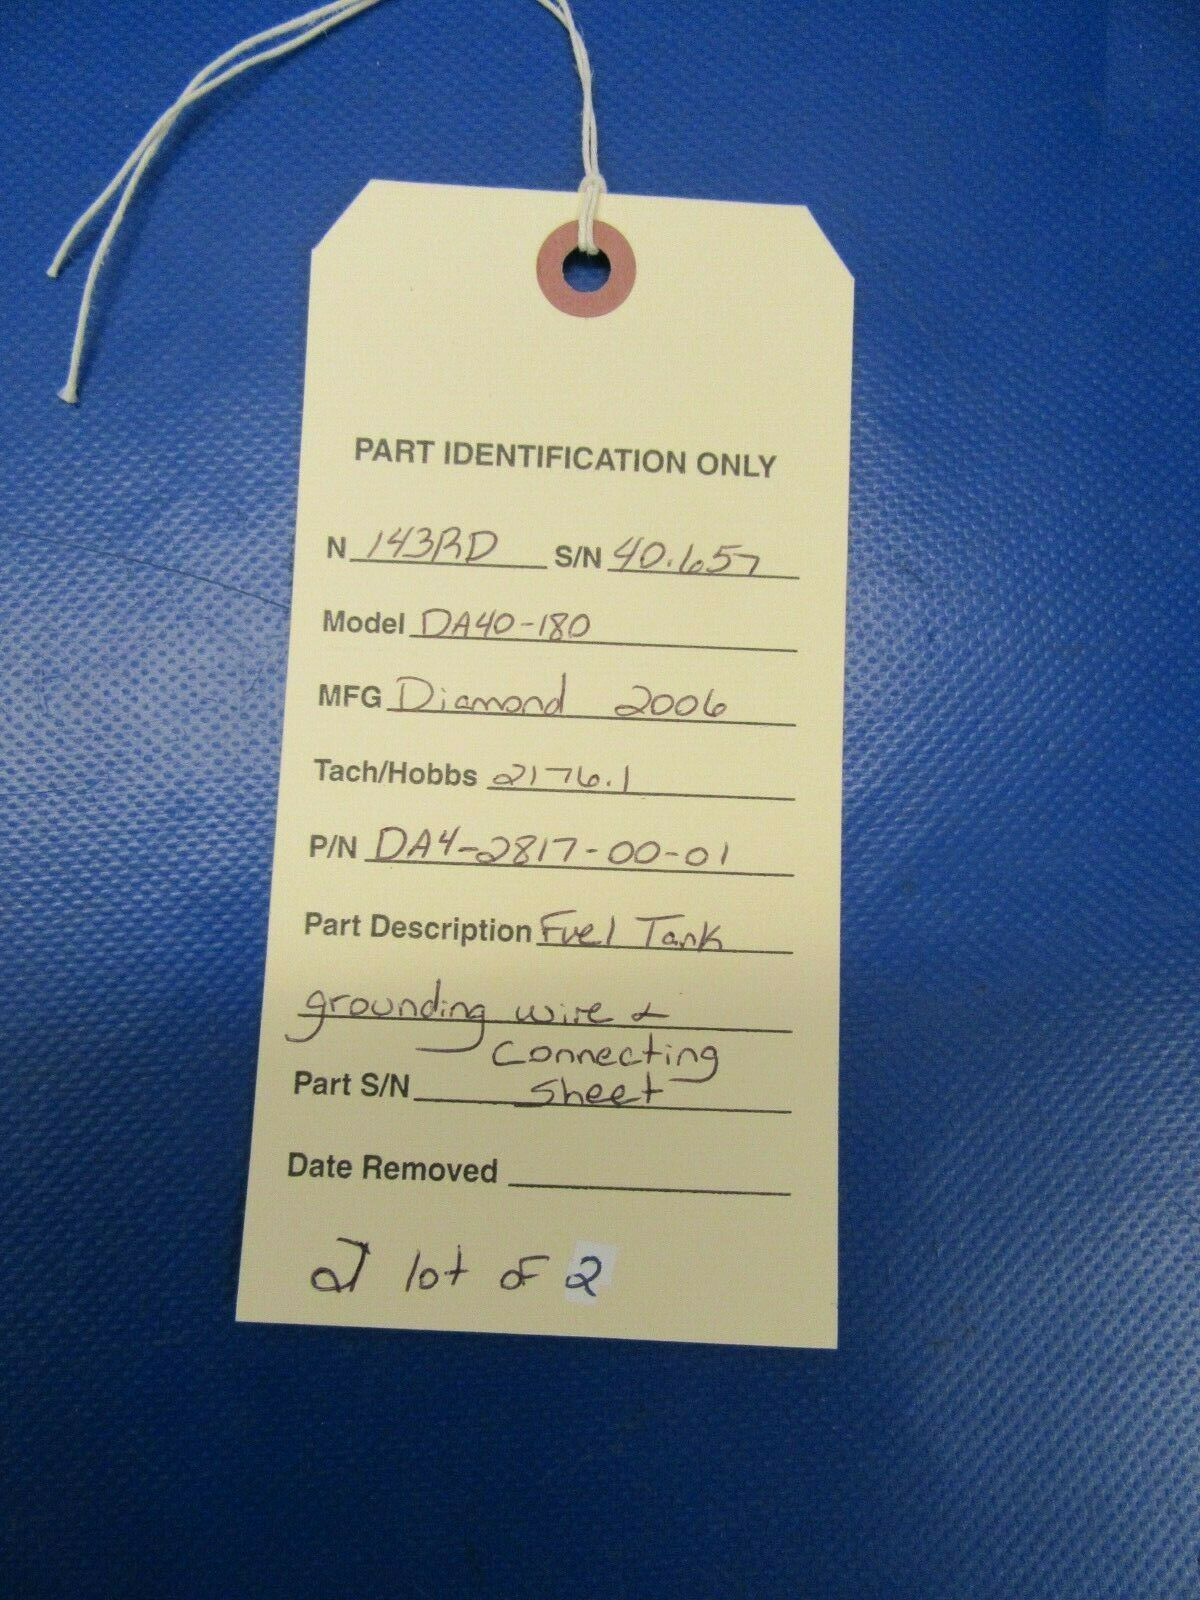 PART IDENTIFICATION ONLY
N 143RD S/N 40.657
Model DA40-180
MFG Diamond 2006
Tach/Hobbs 2176.1
P/N DA4-2817-00-01
Part Description Fuel Tank
grounding wire &
connecting
Part S/N sheet
Date Removed
lot of 2